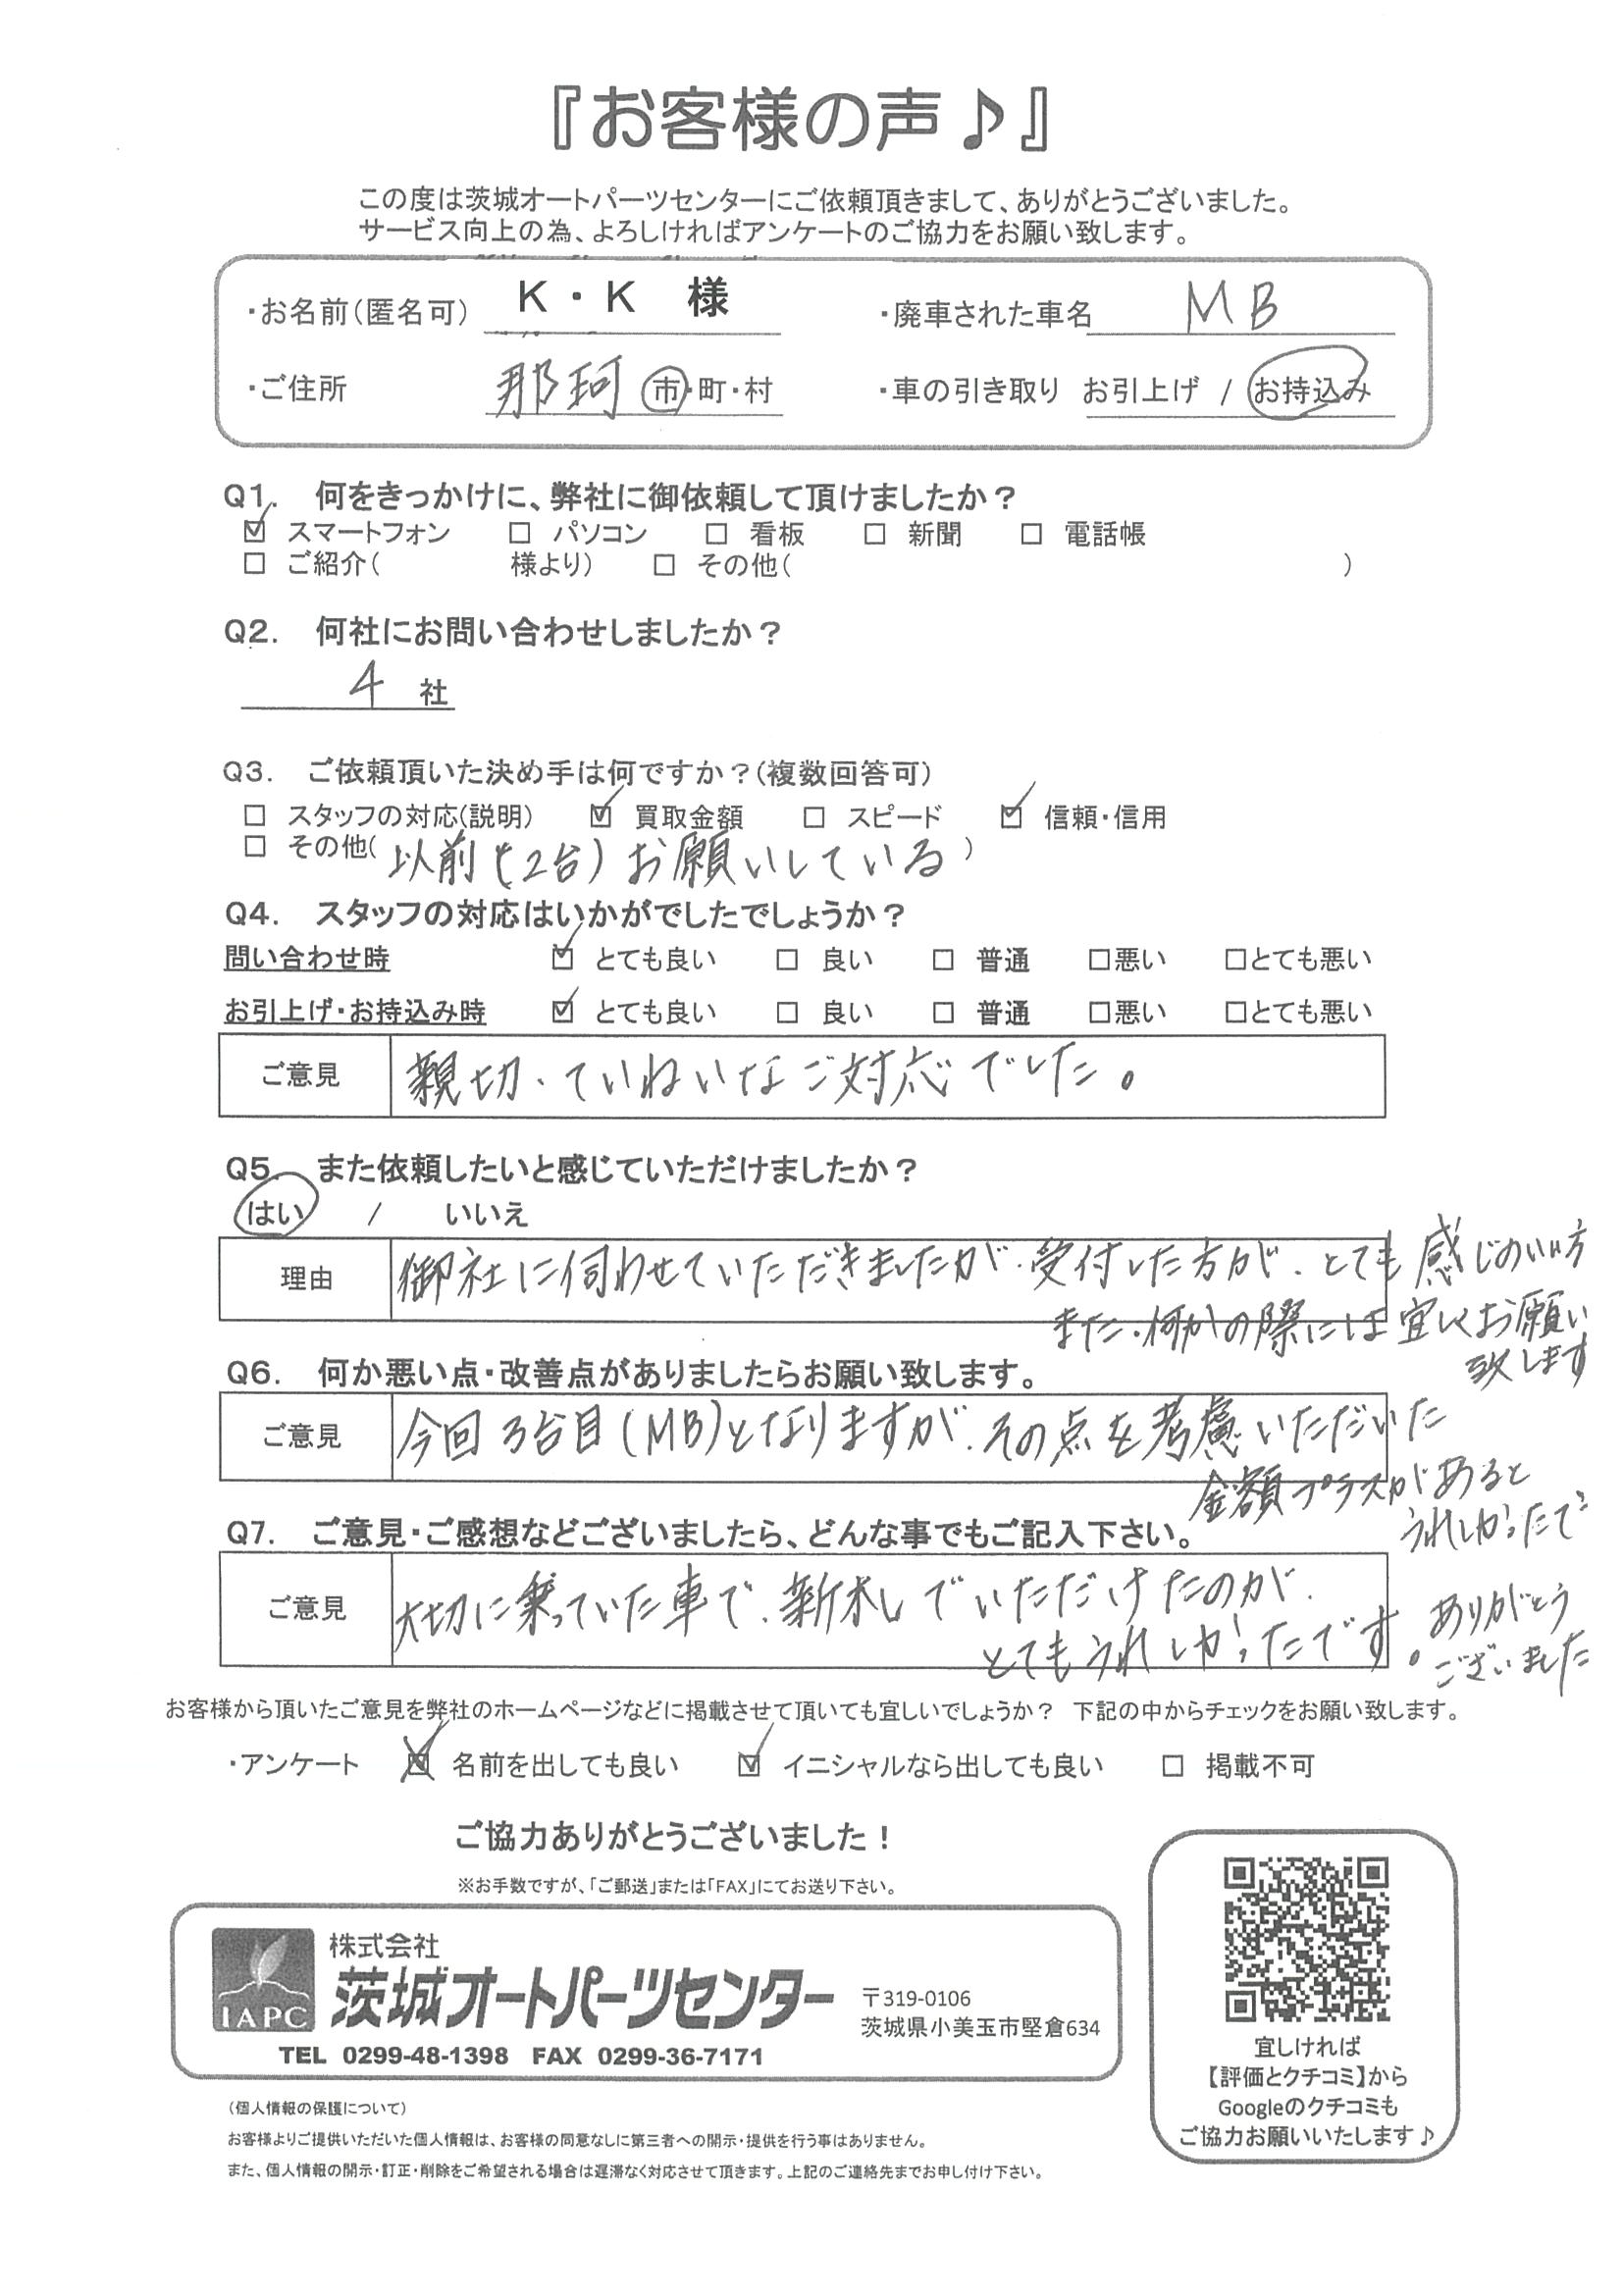 『お客様の声♪』
この度は茨城オートパーツセンターにご依頼頂きまして、ありがとうございました。
サービス向上の為、よろしければアンケートのご協力をお願い致します。
・お名前(匿名可) K・K 様 ・廃車された車名 MB
・ご住所 那珂 市・町・村 ・車の引き取り お引上げ / お持込み
Q1. 何をきっかけに、弊社に御依頼して頂けましたか？
☑ スマートフォン □ パソコン □ 看板 □ 新聞 □ 電話帳
□ ご紹介( 様より) □ その他( )
Q2. 何社にお問い合わせしましたか？
4 社
Q3. ご依頼頂いた決め手は何ですか？(複数回答可)
□ スタッフの対応(説明) ☑ 買取金額 □ スピード ☑ 信頼・信用
□ その他( 以前(も2台) お願いしている )
Q4. スタッフの対応はいかがでしたでしょうか？
問い合わせ時 ☑ とても良い □ 良い □ 普通 □悪い □とても悪い
お引上げ・お持込み時 ☑ とても良い □ 良い □ 普通 □悪い □とても悪い
ご意見 親切、ていねいなご対応でした。
Q5. また依頼したいと感じていただけましたか？
はい / いいえ
理由 御社に伺わせていただきましたが、受付した方が、とても感じのいい方
また、何かの際には宜しくお願い
致します
Q6. 何か悪い点・改善点がありましたらお願い致します。
ご意見 今回3台目(MB)となりますが、その点を考慮いただいた
金額プラスがあると
うれしかったで
Q7. ご意見・ご感想などございましたら、どんな事でもご記入下さい。
ご意見 大切に乗っていた車で、いただけたのが、
とてもうれしかったです。ありがとう
ございました
お客様から頂いたご意見を弊社のホームページなどに掲載させて頂いても宜しいでしょうか？ 下記の中からチェックをお願い致します。
・アンケート ☒ 名前を出しても良い ☑ イニシャルなら出しても良い □ 掲載不可
ご協力ありがとうございました！
※お手数ですが、「ご郵送」または「FAX」にてお送り下さい。
IAPC
株式会社
茨城オートパーツセンター
〒319-0106
茨城県小美玉市堅倉634
TEL 0299-48-1398 FAX 0299-36-7171
宜しければ
【評価とクチコミ】から
Googleのクチコミも
ご協力お願いいたします♪
(個人情報の保護について)
お客様よりご提供いただいた個人情報は、お客様の同意なしに第三者への開示・提供を行う事はありません。
また、個人情報の開示・訂正・削除をご希望される場合は遅滞なく対応させて頂きます。上記のご連絡先までお申し付け下さい。